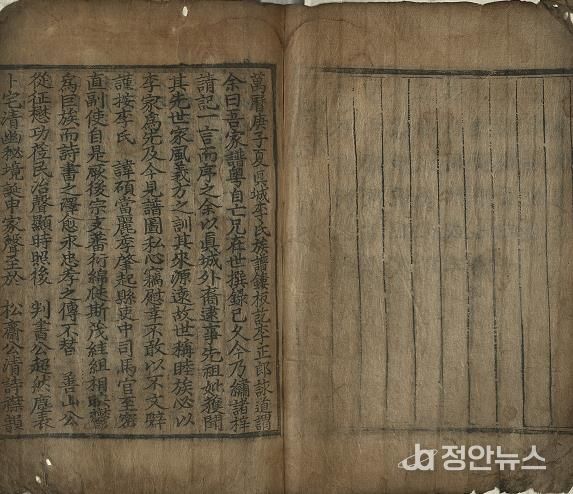 萬曆庚子夏眞城李氏族譜鏤板訖李正郎詠道謂
余曰吾家譜粤自亡兄在世撰錄已久今乃繡諸梓
請記一言而序之余以眞城外裔逮事先祖妣獲聞
其先世家風義方之訓其來源遠故世稱睦族必以
李家爲先及今見譜圖私心竊慰幸不敢以不文辭
謹按李氏 諱碩當麗季肇起縣吏中司馬官至密
直副使自是厥後宗支蕃衍綿 斯茂 組相聯鬱
爲巨族而詩書之澤愈永忠孝之傳不替 善山公
從征懋功莅民治聲顯時照後 判書公超然塵表
卜宅清幽秘境誕申家聲至於 松齋公清詩藻韻
정안뉴스